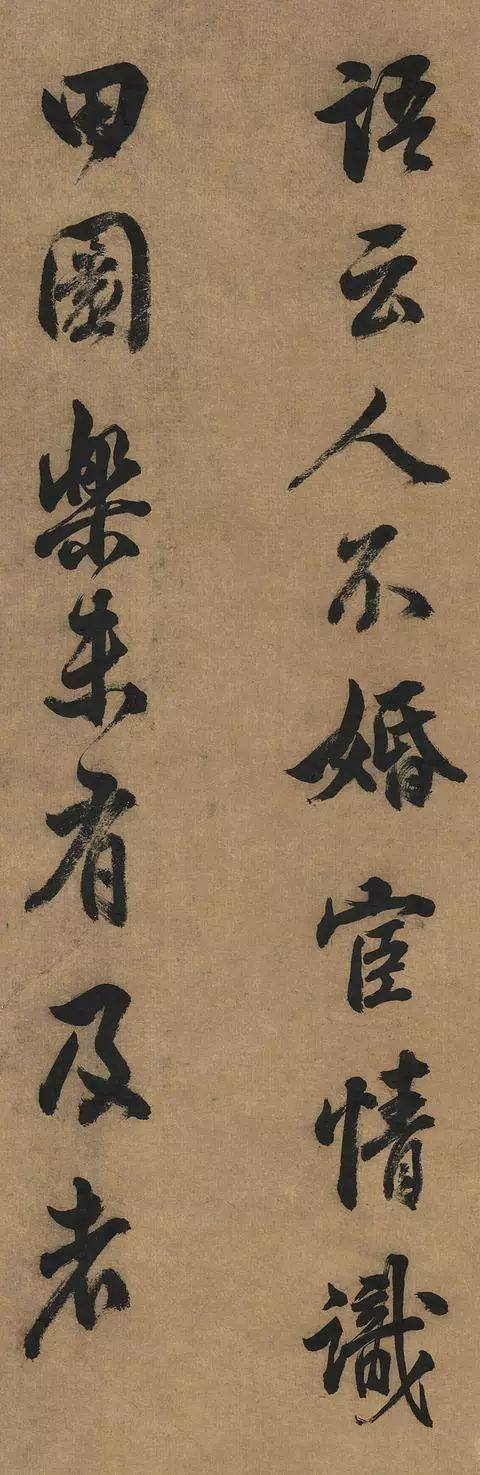 語云人不婚宦情識
田園樂未有及者